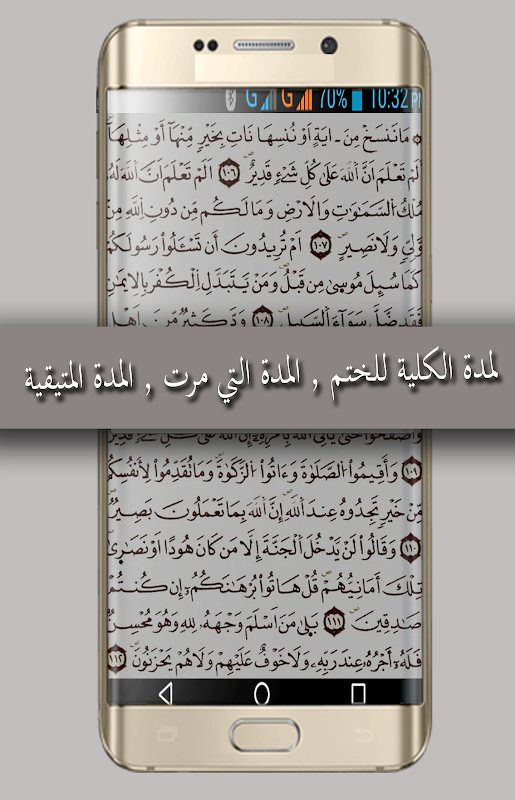 70% 10:32 P
مَانَنسَخْ مِنَ ـ ايَةٍ اَوْ نُنسِهَا نَاتِ بِخَيْرٍ مِّنْهَآ أَوْ مِثْلِهَآ
أَلَمْ تَعْلَمَ اَنَّ اَللَّهَ عَلَىٰ كُلِّ شَےْءٍ قَدِيرٌ ١٠٦ اَلَمْ تَعْلَمَ اَنَّ اَللَّهَ لَهُۥ
مُلْكُ السَّمَٰوَٰتِ وَالَارْضِ وَمَا لَكُم مِّن دُونِ اِللَّهِ مِنْ
وَّلِيٍّ وَلَا نَصِيرٍ ١٠٧ اَمْ تُرِيدُونَ أَن تَسْـَٔلُواْ رَسُولَكُمْ
كَمَا سُئِلَ مُوسۭىٰ مِن قَبْلُ وَمَنْ يَّتَبَدَّلِ اِلْكُفْرَ بِالِايمَٰنِ
فَقَد ضَّلَّ سَوَآءَ اَلسَّبِيلِ ١٠٨ وَدَّ كَثِيرٌ مِّنَ اَهْلِ
لمدة الكلية للختم , المدة التي مرت , المدة المتيقية
وَاصْفَحُواْ حَتَّىٰ يَاتِيَ اَللَّهُ بِأَمْرِهِۦٓ إِنَّ اَللَّهَ عَلَىٰ كُلِّ شَےْءٍ قَدِيرٌ
١٠٩ وَأَقِيمُواْ الصَّلَوٰةَ وَءَاتُواْ الزَّكَوٰةَ وَمَا تُقَدِّمُواْ لِأَنفُسِكُم
مِّنْ خَيْرٍ تَجِدُوهُ عِندَ اَللَّهِ إِنَّ اَللَّهَ بِمَا تَعْمَلُونَ بَصِيرٌ
١١٠ وَقَالُواْ لَنْ يَّدْخُلَ اَلْجَنَّةَ إِلَّا مَن كَانَ هُودًا اَوْ نَصَٰرَىٰ
تِلْكَ أَمَانِيُّهُمْ قُلْ هَاتُواْ بُرْهَٰنَكُمُۥٓ إِن كُنتُمْ
صَٰدِقِينَ ١١١ بَلَىٰ مَنَ اَسْلَمَ وَجْهَهُۥ لِلهِ وَهُوَ مُحْسِنٌ
فَلَهُۥٓ أَجْرُهُۥ عِندَ رَبِّهِۦ وَلَا خَوْفٌ عَلَيْهِمْ وَلَا هُمْ يَحْزَنُونَ ١١٢